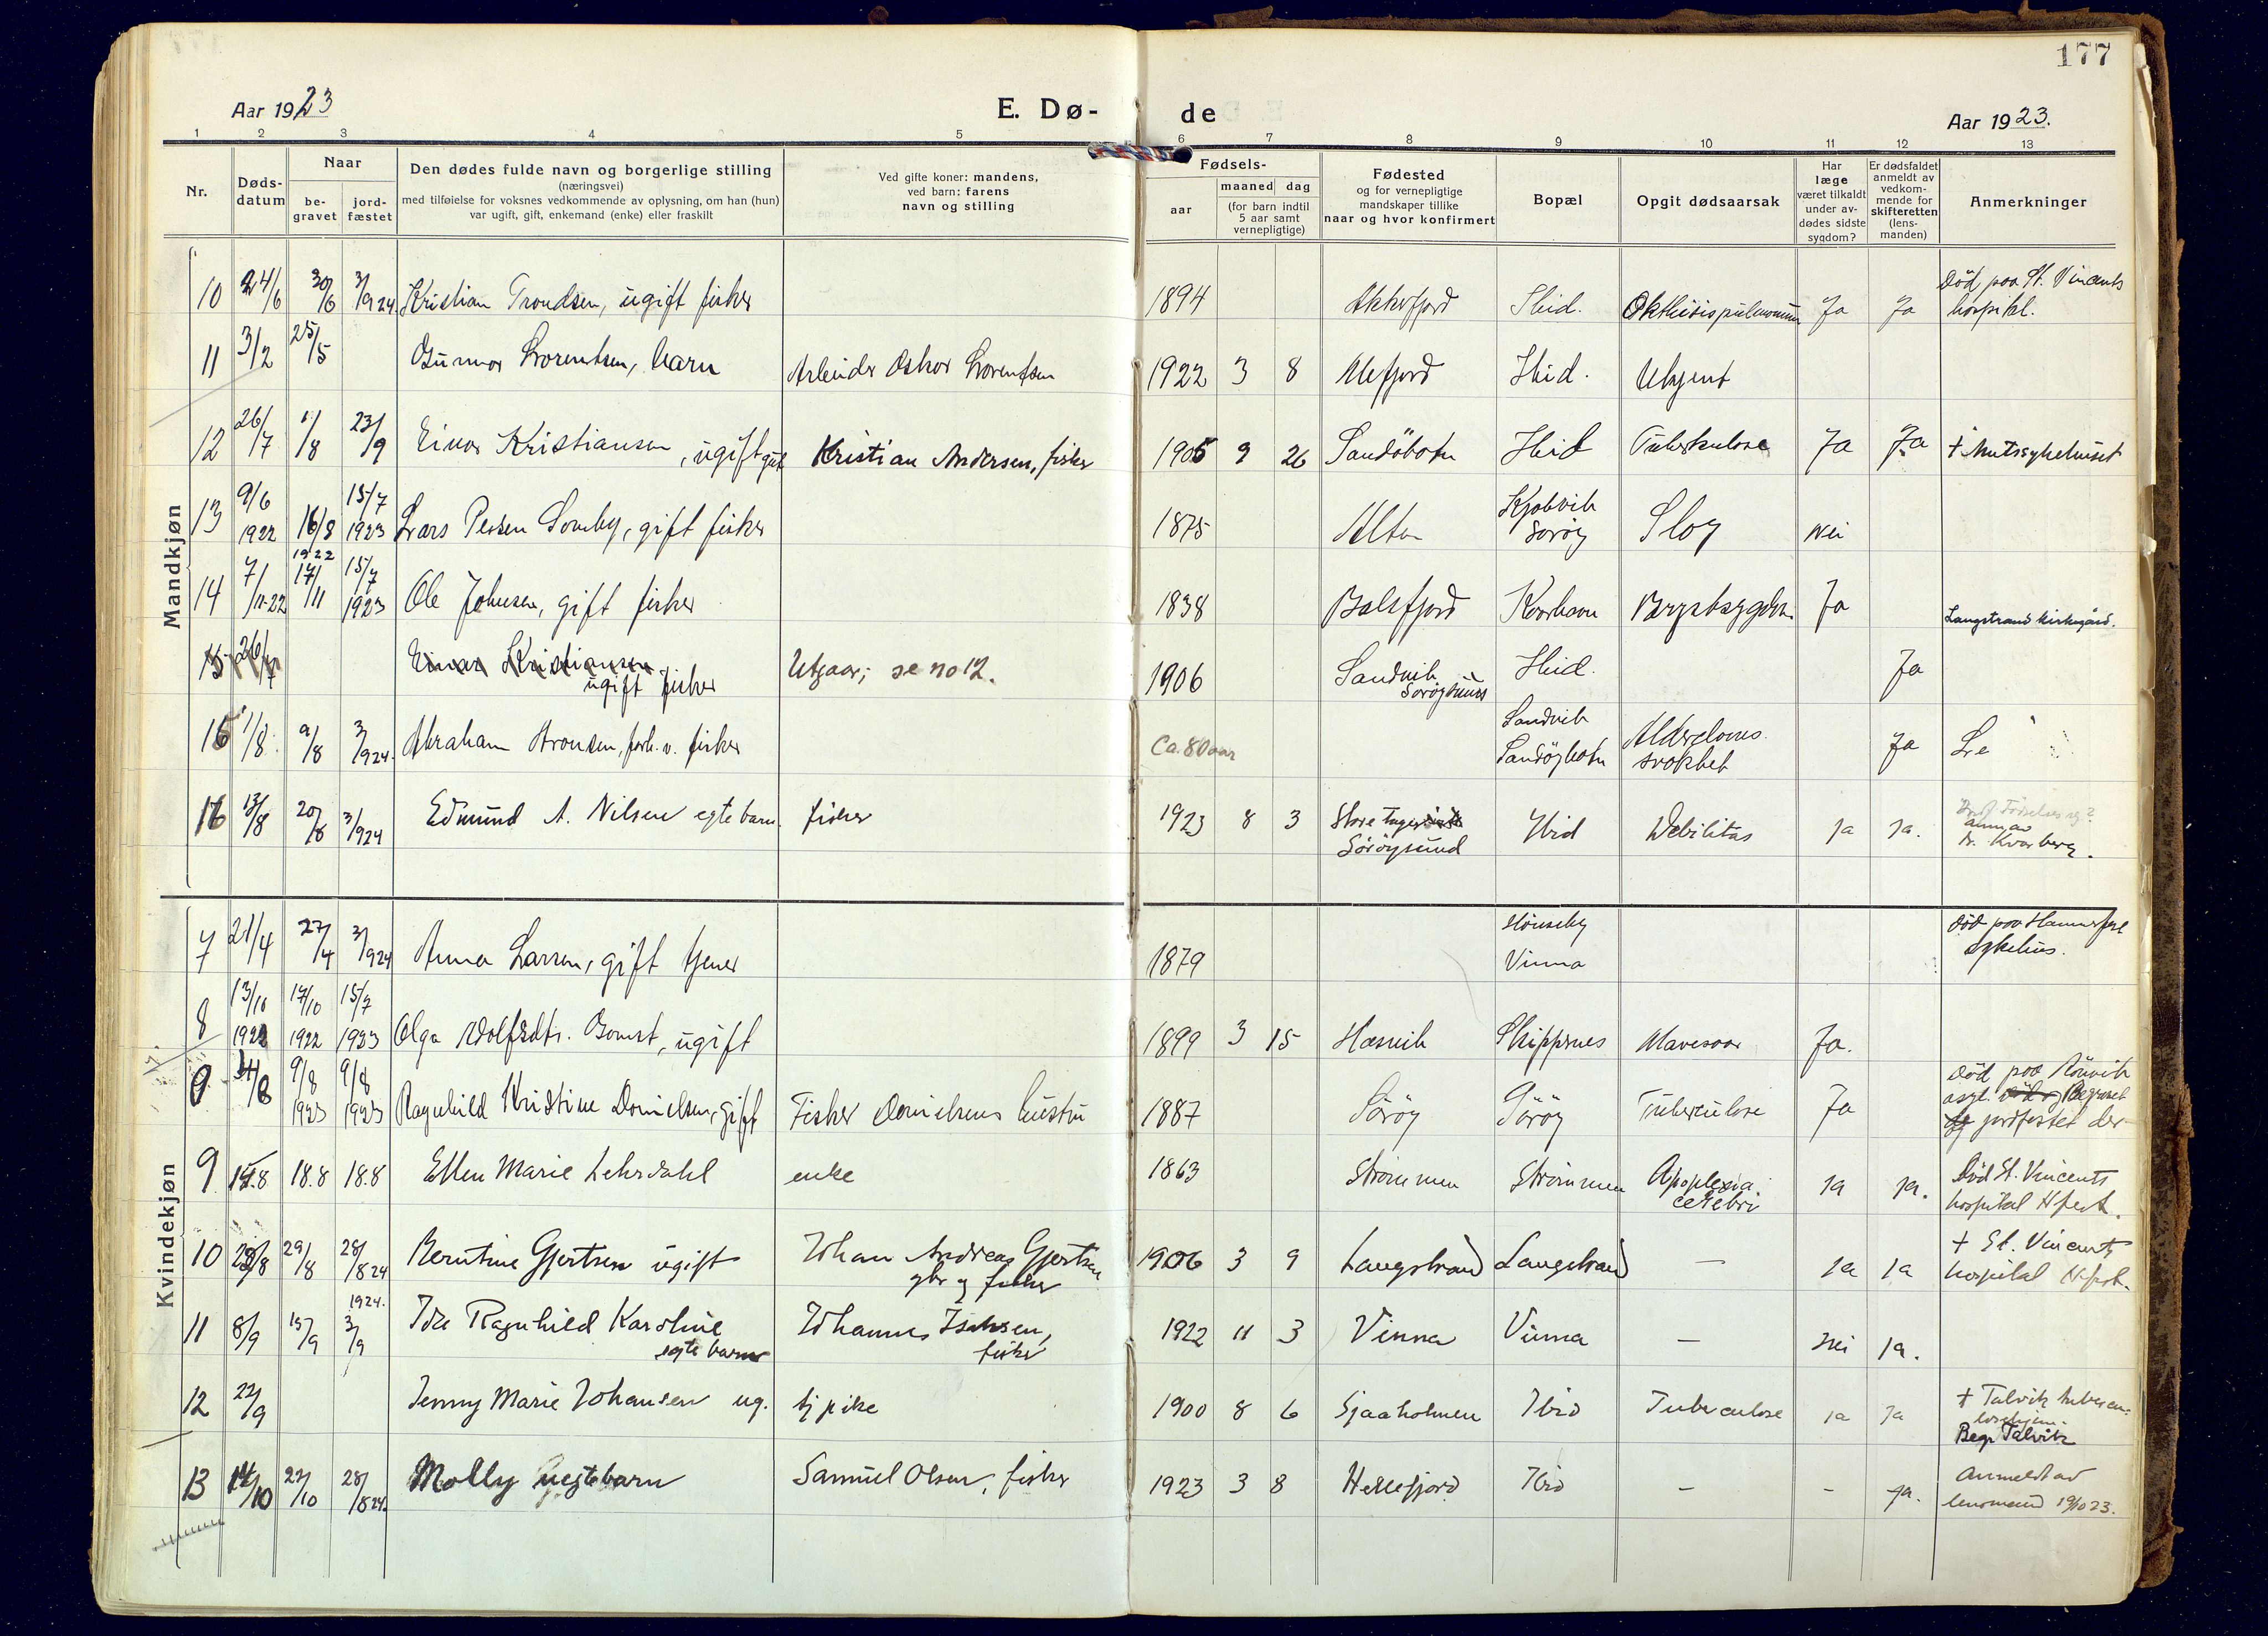 177
Aar 1923
E. Dø-
de
Aar 1923.
1 2 3 4 5 6 7 8 9 10 11 12 13
Nr.
Døds-
datum
Naar
be-
gravet
jord-
fæstet
Den dødes fulde navn og borgerlige stilling
(næringsvei)
med tilføielse for voksnes vedkommende av oplysning, om han (hun)
var ugift, gift, enkemand (enke) eller fraskilt
Ved gifte koner: mandens,
ved barn: farens
navn og stilling
Fødsels-
aar
maaned dag
(for barn indtil
5 aar samt
vernepligtige)
Fødested
og for vernepligtige
mandskaper tillike
naar og hvor konfirmert
Bopæl
Opgit dødsaarsak
Har
læge
været tilkaldt
under av-
dødes sidste
sygdom?
Er dødsfaldet
anmeldt av
vedkom-
mende for
skifteretten
(lens-
manden)
Anmerkninger
Mandkjøn
10 24/6 30/6 3/9 24. Kristian Trondsen, ugift fisker 1894 Akkerfjord Ibid. Ja Ja Død paa St. Vincents
hospital.
11 3/2 25/5 Gunnar Lorentsen, barn Arbeider Oskar Lorentsen 1922 3 8 Ibid. Ukjent
12 26/7 1/8 23/9 Einar Kristiansen, ugift gut Kristian Andersen, fisker 1905 9 26 Sandöbotn Ibid Tuberkulose Ja Ja
13 9/6 1922 16/8 1922 15/7 1923 Lars Persen Somby, gift fisker 1875 Alten Sorøy Slag Nei
14 7/11-22 17/11 15/7 1923 Ole Johnsen, gift fisker 1838 Balsfjord Kvorhavn Brystsygdom Ja Langstrand kirkegård.
15 26/7 Einar Kristiansen
ugift fisker Utgaar; se no 12. 1906 Sandvik
Sorøysund Ibid. Ja
15 1/8 9/8 3/9 24. Abraham Aronsen, forh. v. fisker Ca. 80 aar Sandvik
Sandøybotn Alderdoms
svakhet Ja
16 13/8 20/8 3/9 24 Edmund A. Nilsen egte barn. fisker 1923 8 3 Store
Sörøysund Ibid Debilitas ja ja. anm av
dr. Kvarberg.
Kvindekjøn
7 21/4 27/4 3/9 24 Anna Larsen, gift tjener 1879 Hönseby
Vinna Död paa Hammerfest
sykehus.
8 13/10 1922 17/10 1922 15/7 1923 Olga Adolfsdtr. ugift 1899 3 15 Hasvik Skippernes Mavesaar Ja.
9 9/8 1923 9/8 1923 Ragnhild Kristine Danielsen, gift Fisker Danielsens hustru 1887 Sörøy Sörøy Tuberculose Ja Död paa Rönvik
asyl. Begravet
og jordfestet der
9 14.8 18.8 18.8 Ellen Marie Lehrdahl enke 1863 Strömmen Strömmen Apoplexia
cerebri ja ja. Död St. Vincents
hospital Hfest.
10 23/8 29/8 28/8 24 Berntine Gjertsen ugift Johan Andreas Gjertsen
gbr og fisker 1906 3 9 Langstrand Langstrand — ja ja † St. Vincents
hospital Hfest.
11 8/9 15/9 1924. 3/9 Ida Ragnhild Karoline
egte barn Johannes Isaksen,
fisker 1922 11 3 Vinna Vinna — nei ja.
12 22/9 Jenny Marie Johansen ug. tj pike 1900 8 6 Sjaaholmen Ibid Tuberculose ja ja † Talvik tubercu-
losehjem.
Begr Talvik
13 14/10 22/10 28/8 24. Molly uegtebarn Samuel Olsen, fisker 1923 3 8 Hellefjord Ibid — - ja. Anmeldt av
lensmand 19/10 23.